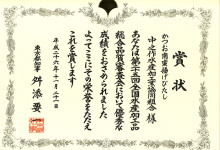 賞状
かつお南蛮揚げびたし
中之作水産加工業協同組合様
あなたは第二十五回全国水産加工品
総合品質審査会において優秀な
成績をおさめられました
よってここにその栄誉をたたえ
これを賞します
平成二十六年十一月二十一日
東京都知事
舛添要一